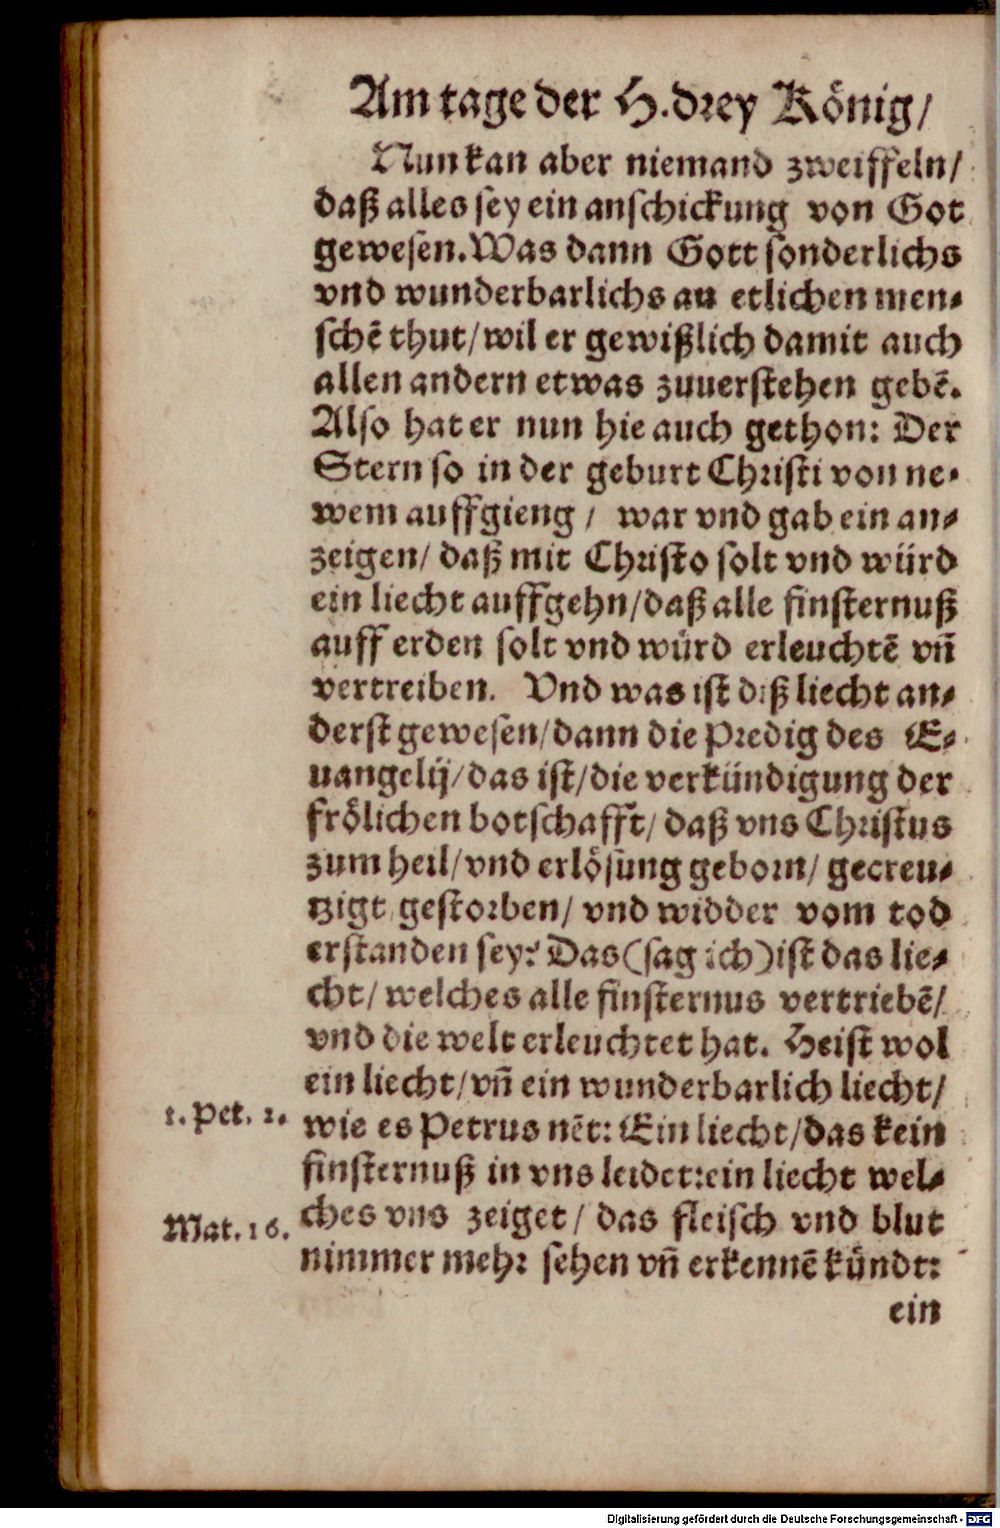 Am tage der H. drey König/
Nun kan aber niemand zweiffeln/
daß alles sey ein anschickung von Got
gewesen. Was dann Gott sonderlichs
vnd wunderbarlichs an etlichen men⸗
schē thut/ wil er gewißlich damit auch
allen andern etwas zuuerstehen gebē.
Also hat er nun hie auch gethon: Der
Stern so in der geburt Christi von ne⸗
wem auffgieng / war vnd gab ein an⸗
zeigen/ daß mit Christo solt vnd würd
ein liecht auffgehn/ daß alle finsternuß
auff erden solt vnd würd erleuchtē vñ
vertreiben. Vnd was ist diß liecht an⸗
derst gewesen/ dann die Predig des E⸗
uangelij/ das ist/ die verkündigung der
frölichen botschafft/ daß vns Christus
zum heil/ vnd erlösung geborn/ gecreu⸗
tzigt gestorben/ vnd widder vom tod
erstanden sey? Das (sag ich) ist das lie⸗
cht/ welches alle finsternus vertriebē/
vnd die welt erleuchtet hat. Heist wol
ein liecht/ vñ ein wunderbarlich liecht/
1. Pet. 2. wie es Petrus nēt: Ein liecht/ das kein
finsternuß in vns leidet: ein liecht wel⸗
Mat. 16. ches vns zeiget/ das fleisch vnd blut
nimmer mehr sehen vñ erkennē kündt:
ein
Digitalisierung gefördert durch die Deutsche Forschungsgemeinschaft - DFG